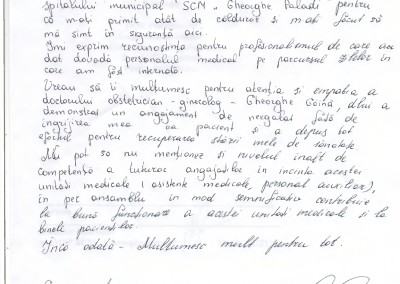 spitalului municipal "SCM „ Gheorghe Paladi" pentru
că m-ați primit atât de călduros și m-ați făcut să
mă simt în siguranță aici.
Îmi exprim recunoștința pentru profesionalismul de care au
dat dovadă personalul medical pe parcursul zilelor în
care am fost internată.
Vreau să îi mulțumesc pentru atenția și empatia a
doctorului obstetrician - ginecolog - Gheorghe Goină, dlui a
demonstrat un angajament de neegalat față de
îngrijirea mea ca pacient și a depus tot
efortul pentru recuperarea stării mele de sănătate
Nu pot să nu menționez și nivelul înalt de
competență a tuturor angajaților în incinta acestei
unități medicale (asistente medicale, personal auxiliar),
în per ansamblu în mod semnificativ contribuie
la buna funcționare a acestei unități medicale și la
binele pacienților.
Încă odată - Mulțumesc mult pentru tot.